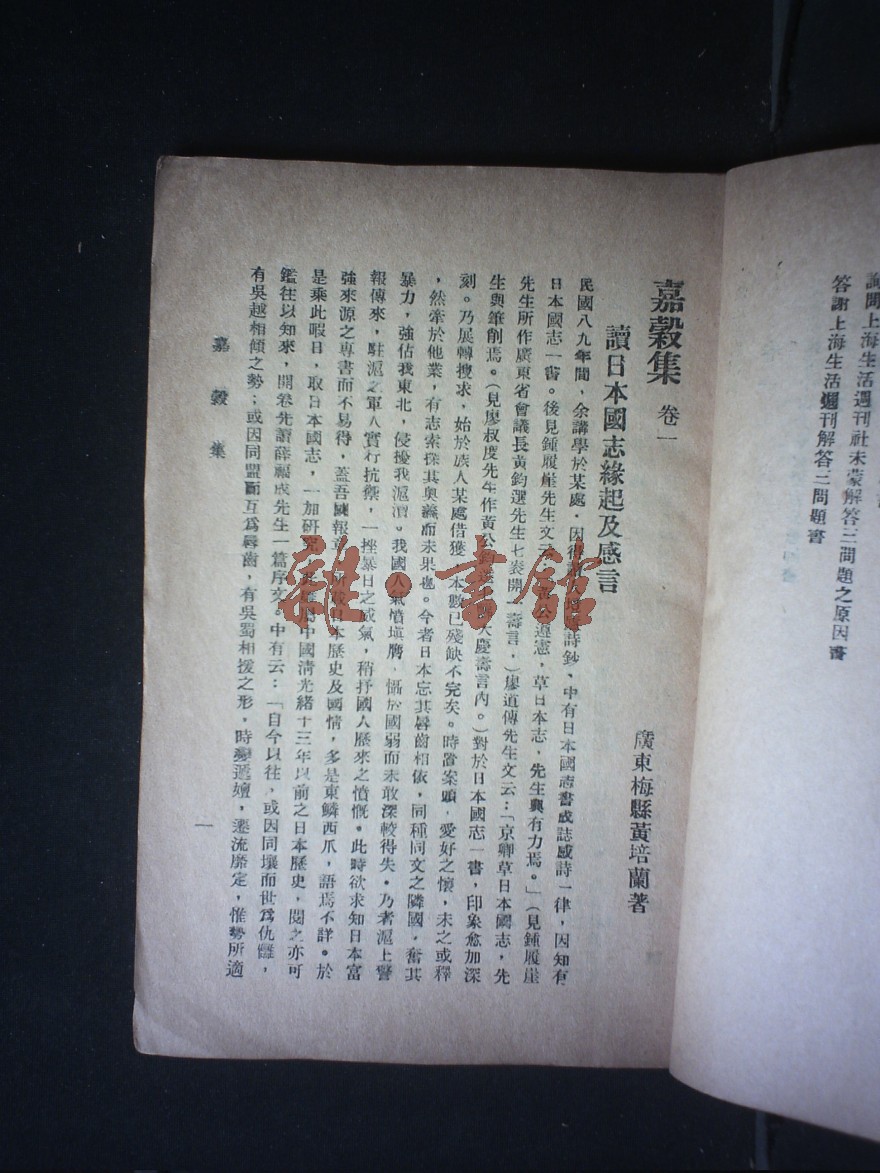 詢問上海生活週刊社未蒙解答三問題之原因書
答謝上海生活週刊解答三問題書
嘉穀集 卷一
讀日本國志緣起及感言
廣東梅縣黃培蘭著
民國八九年間，余講學於某處，因得詩鈔，中有日本國志書成誌感詩一律，因知有
日本國志一書。後見鍾履崖先生文云公遵憲，草日本志，先生與有力焉。」（見鍾履崖
先生所作廣東省會議長黃鈞選先生七袠開一壽言，）廖道傳先生文云：「京卿草日本國志，先
生與筆削焉。（見廖叔度先生作黃公鈞選大慶壽言內。）對於日本國志一書，印象愈加深
刻。乃展轉搜求，始於族人某處借獲一本數已殘缺不完矣。時置案頭，愛好之懷，未之或釋
，然牽於他業，有志索探其奧義而未果也。今者日本忘其唇齒相依，同種同文之隣國，奮其
暴力，強佔我東北，侵擾我滬濱。我國人氣憤塡膺，懾於國弱而未敢深較得失。乃者滬上警
報傳來，駐滬之軍人實行抗禦，一挫暴日之威氣，稍抒國人歷來之憤慨。此時欲求知日本富
強來源之專書而不易得，蓋吾國報章所後日本歷史及國情，多是東鱗西爪，語焉不詳。於
是乘此暇日，取日本國志，一加研究屬中國淸光緒十三年以前之日本歷史，閱之亦可
鑑往以知來，開卷先讀薛福成先生一篇序文。中有云：「自今以往，或因同壤而世爲仇讎，
有吳越相傾之勢；或因同盟而互爲唇齒，有吳蜀相援之形，時變遞嬗，遷流靡定，惟勢所適
嘉穀集
一
雜·書館